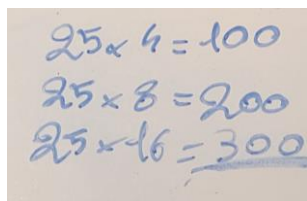 25 × 4 = 100
25 × 8 = 200
25 × 16 = 300